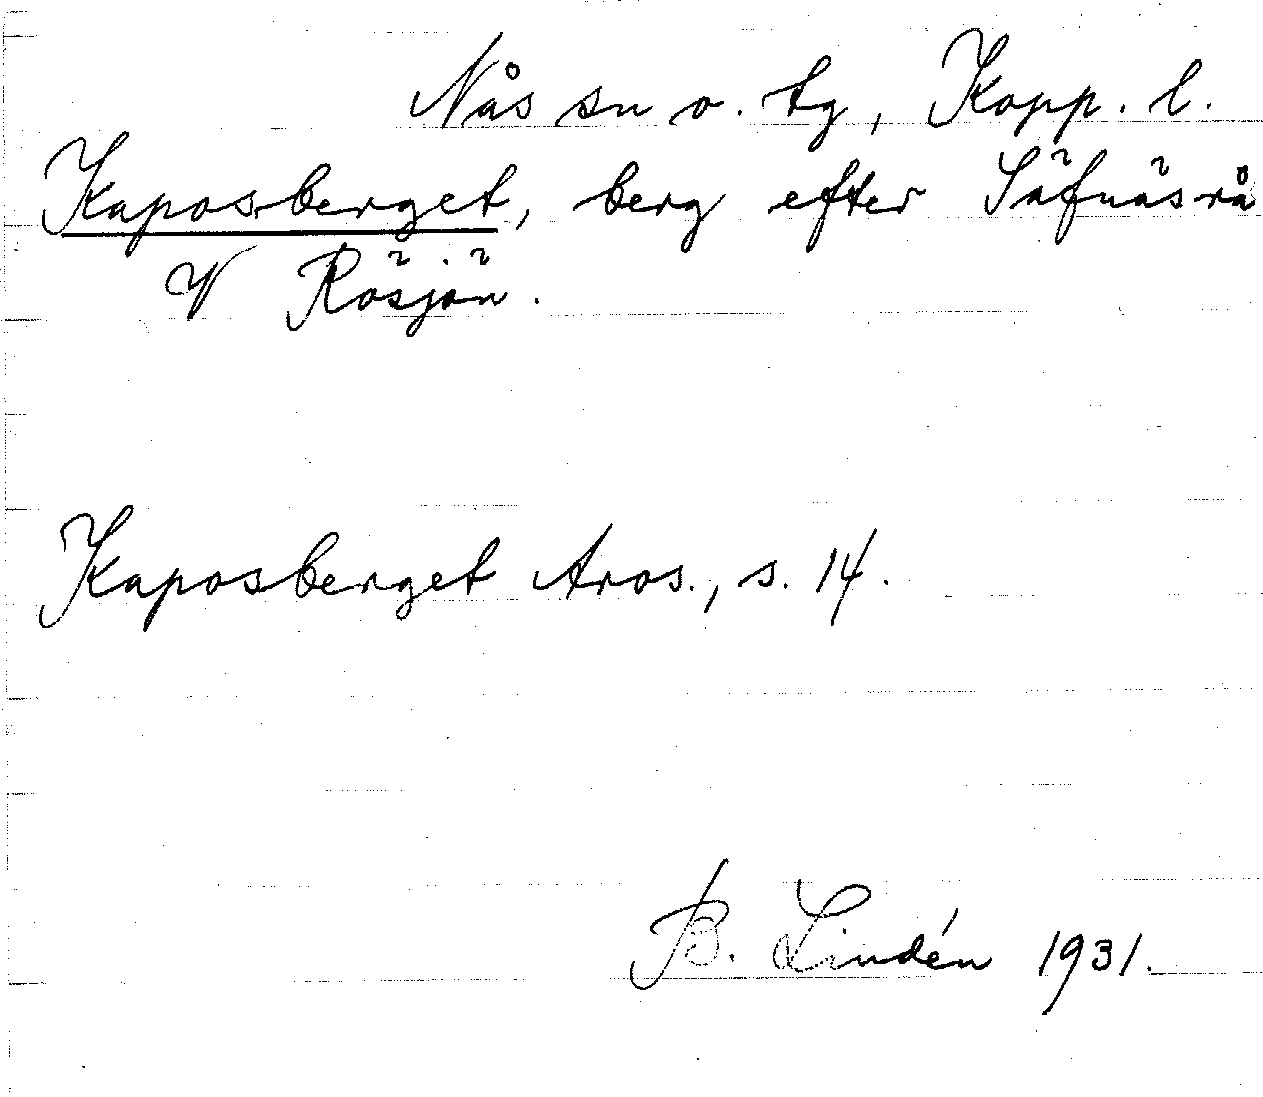 Nås sn o. tg, Kopp. l.
Kaposberget, berg efter Säfnäsrå
V Rösjön.
Kaposberget Aros., s. 14.
B. Lindén 1931.